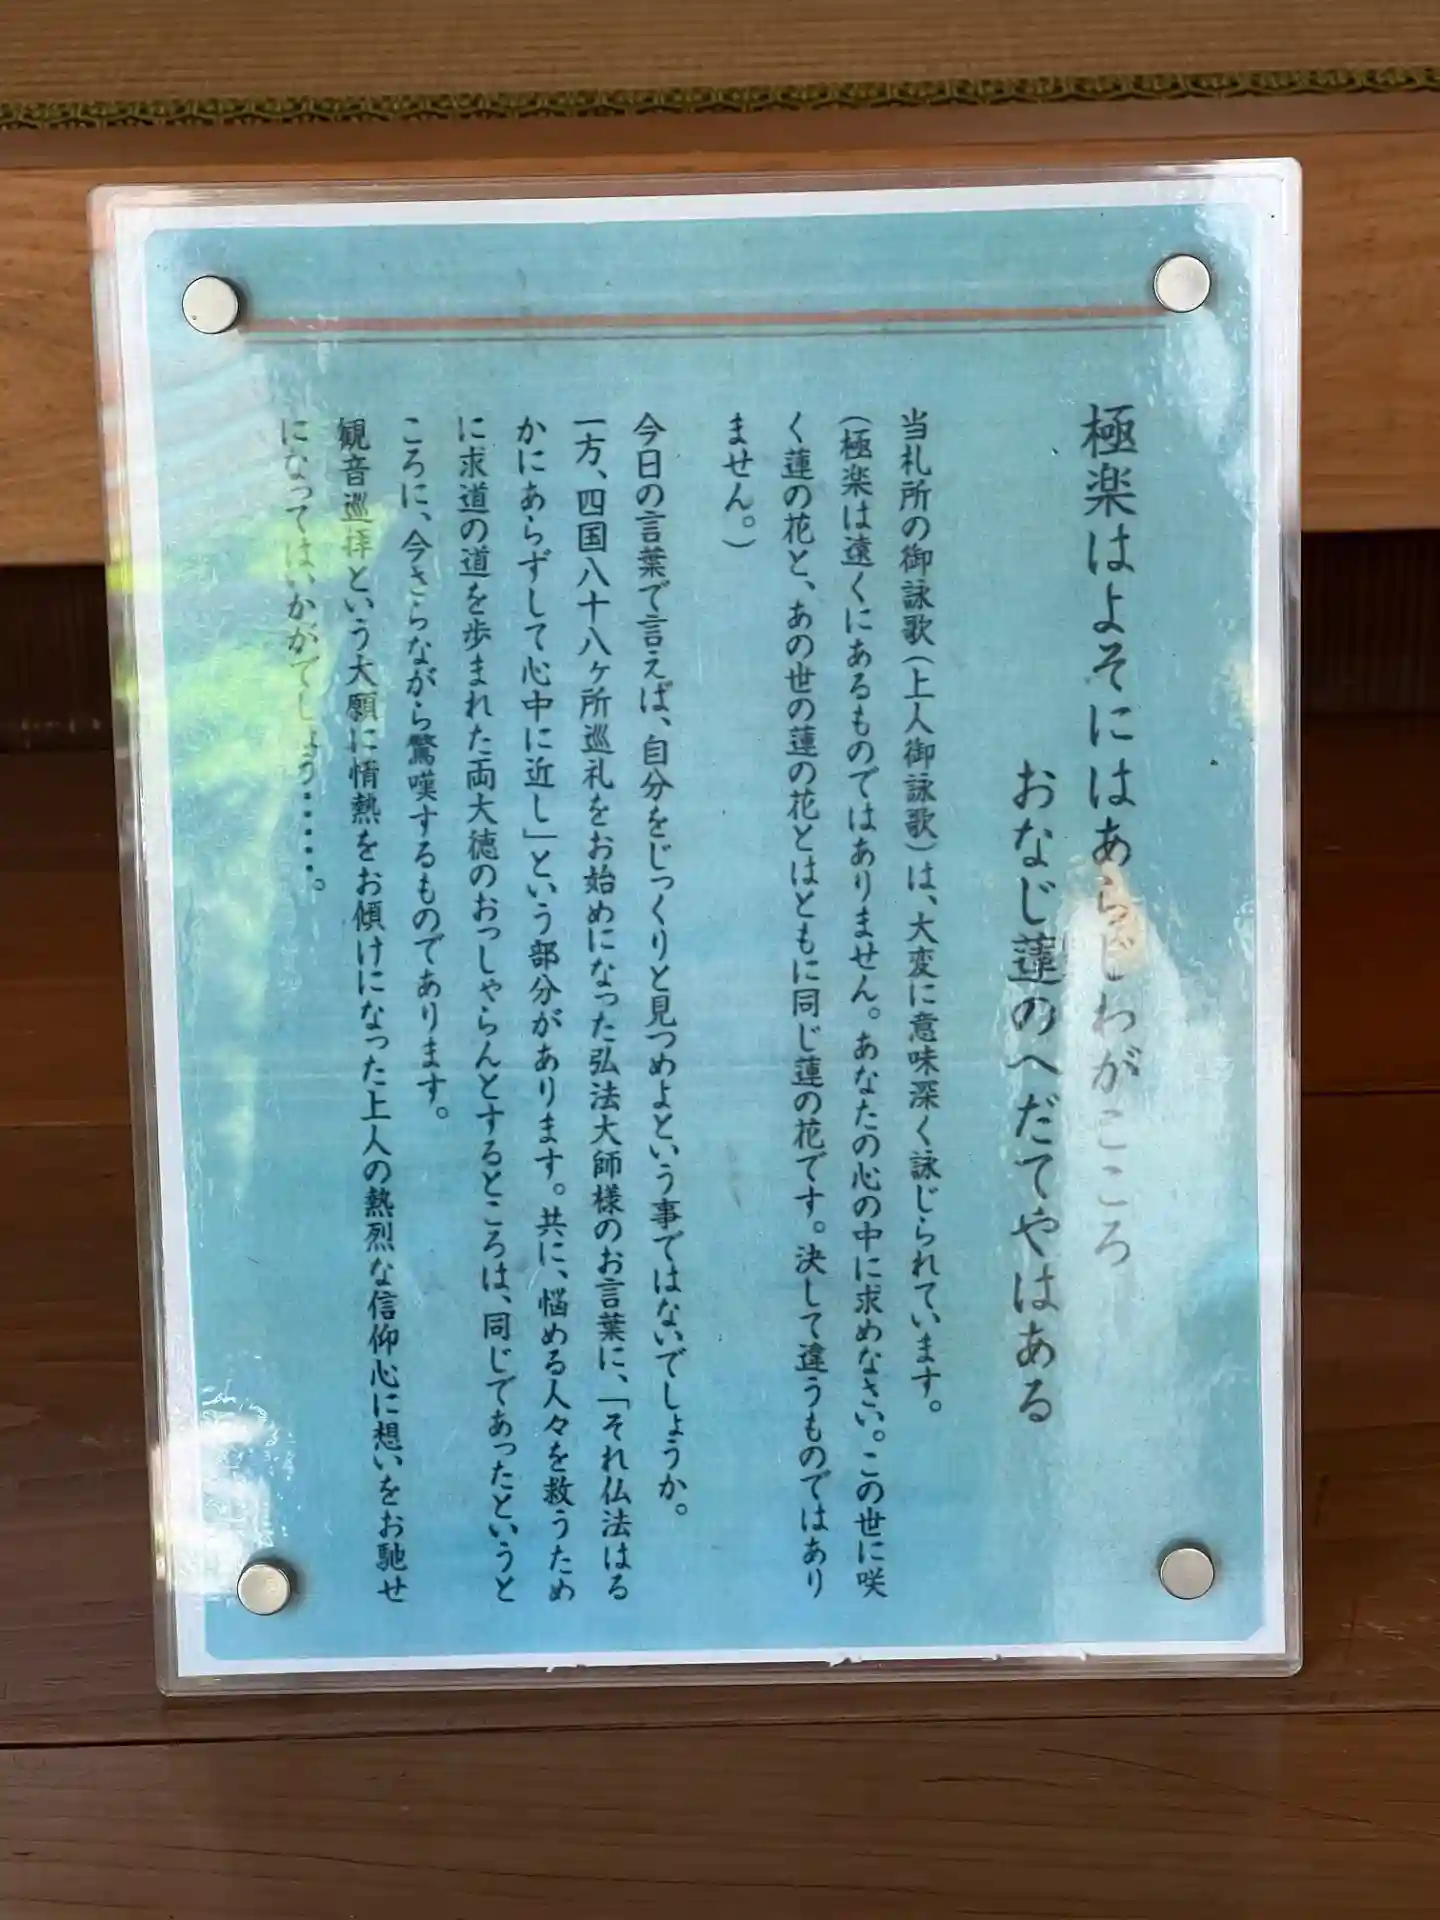 極楽はよそにはあらじわがこころ
おなじ蓮のへだてやはある
当札所の御詠歌(上人御詠歌)は、大変に意味深く詠じられています。
(極楽は遠くにあるものではありません。あなたの心の中に求めなさい。この世に咲
く蓮の花と、あの世の蓮の花とはともに同じ蓮の花です。決して違うものではあり
ません。)
今日の言葉で言えば、自分をじっくりと見つめよという事ではないでしょうか。
一方、四国八十八ヶ所巡礼をお始めになった弘法大師様のお言葉に、「それ仏法はる
かにあらずして心中に近し」という部分があります。共に、悩める人々を救うため
に求道の道を歩まれた両大徳のおっしゃらんとするところは、同じであったというと
ころに、今さらながら驚嘆するものであります。
観音巡拝という大願に情熱をお傾けになった上人の熱烈な信仰心に想いをお馳せ
になってはいかがでしょう……。